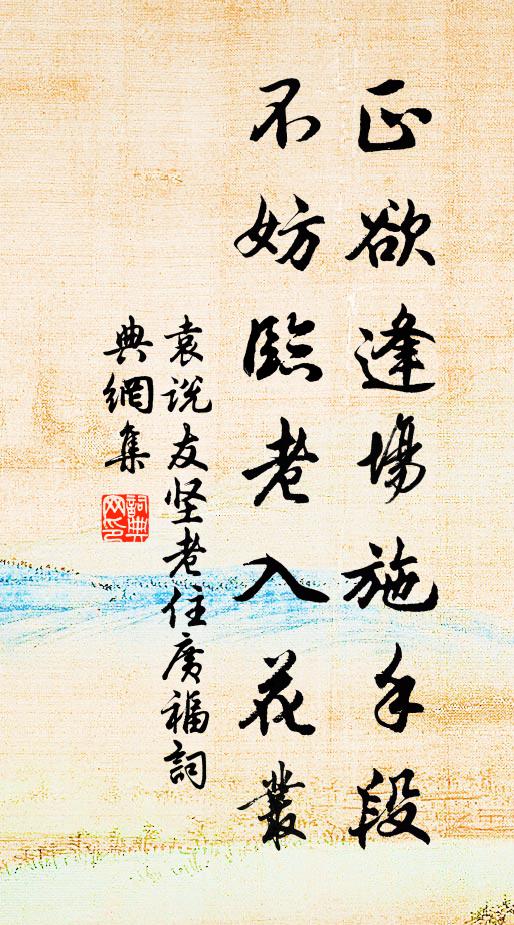 正欲逢場施手段
不妨臨老入花叢
袁说友坚老住广福詞
典網集
詞典
网印